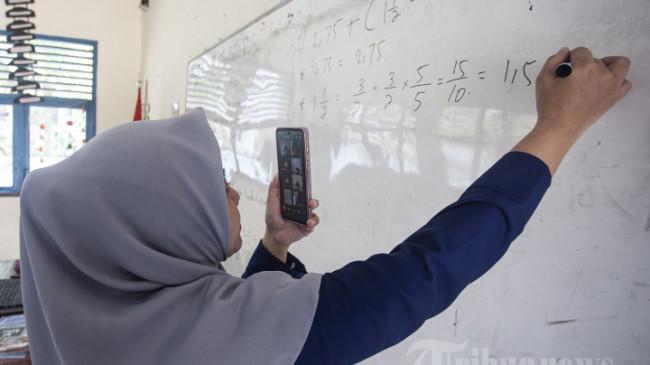 2,75 + (1 1/2
* 2,75 = 2,75
* 1 1/2 = 3/2 = 3/2 × 5/5 = 15/10 = 1,5
Tribunnews